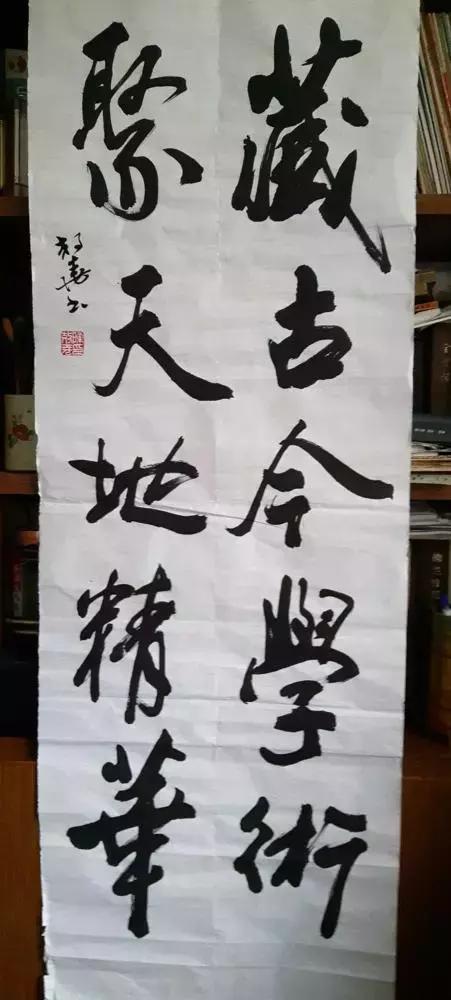 藏古今學術
聚天地精華